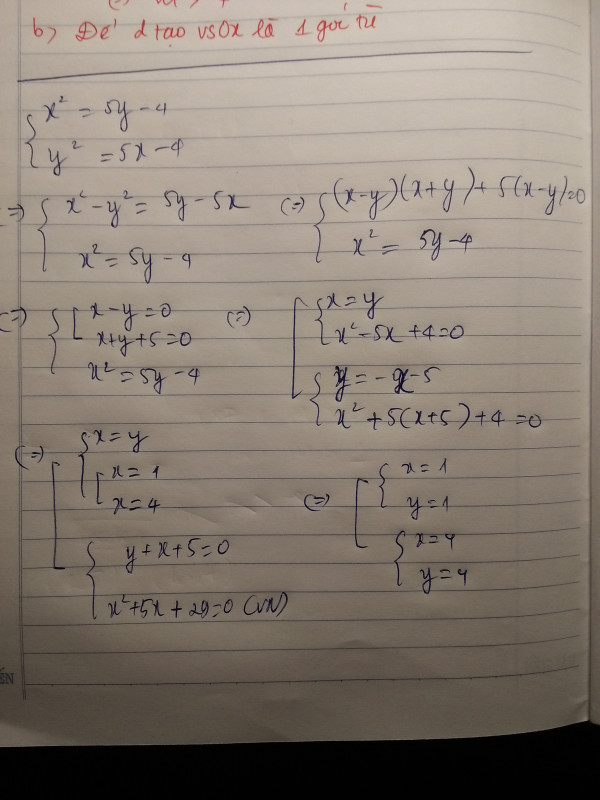 b) Để d tạo vs Ox là 1 góc tù
{ x² = 5y - 4
{ y² = 5x - 4
(=) { x² - y² = 5y - 5x
{ x² = 5y - 4
(=) { (x-y)(x+y) + 5(x-y)=0
{ x² = 5y - 4
(=) { [ x - y = 0
[ x+y+5 = 0
x² = 5y - 4
(=) [ { x = y
{ x² - 5x + 4 = 0
{ y = -x - 5
{ x² + 5(x+5) + 4 = 0
(=) [ { x = y
[ x = 1
[ x = 4
{ y + x + 5 = 0
{ x² + 5x + 29 = 0 (VN)
(=) [ { x = 1
{ y = 1
{ x = 4
{ y = 4
ẾN